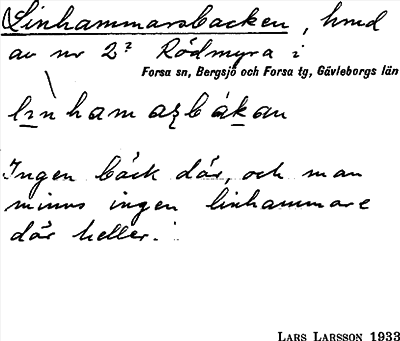 Linhammarsbacken, hmd
av nr 2² Rödmyra i
Forsa sn, Bergsjö och Forsa tg, Gävleborgs län
lìnhamaʂbákan
Ingen bäck där, och man
minns ingen linhammare
där heller.
LARS LARSSON 1933